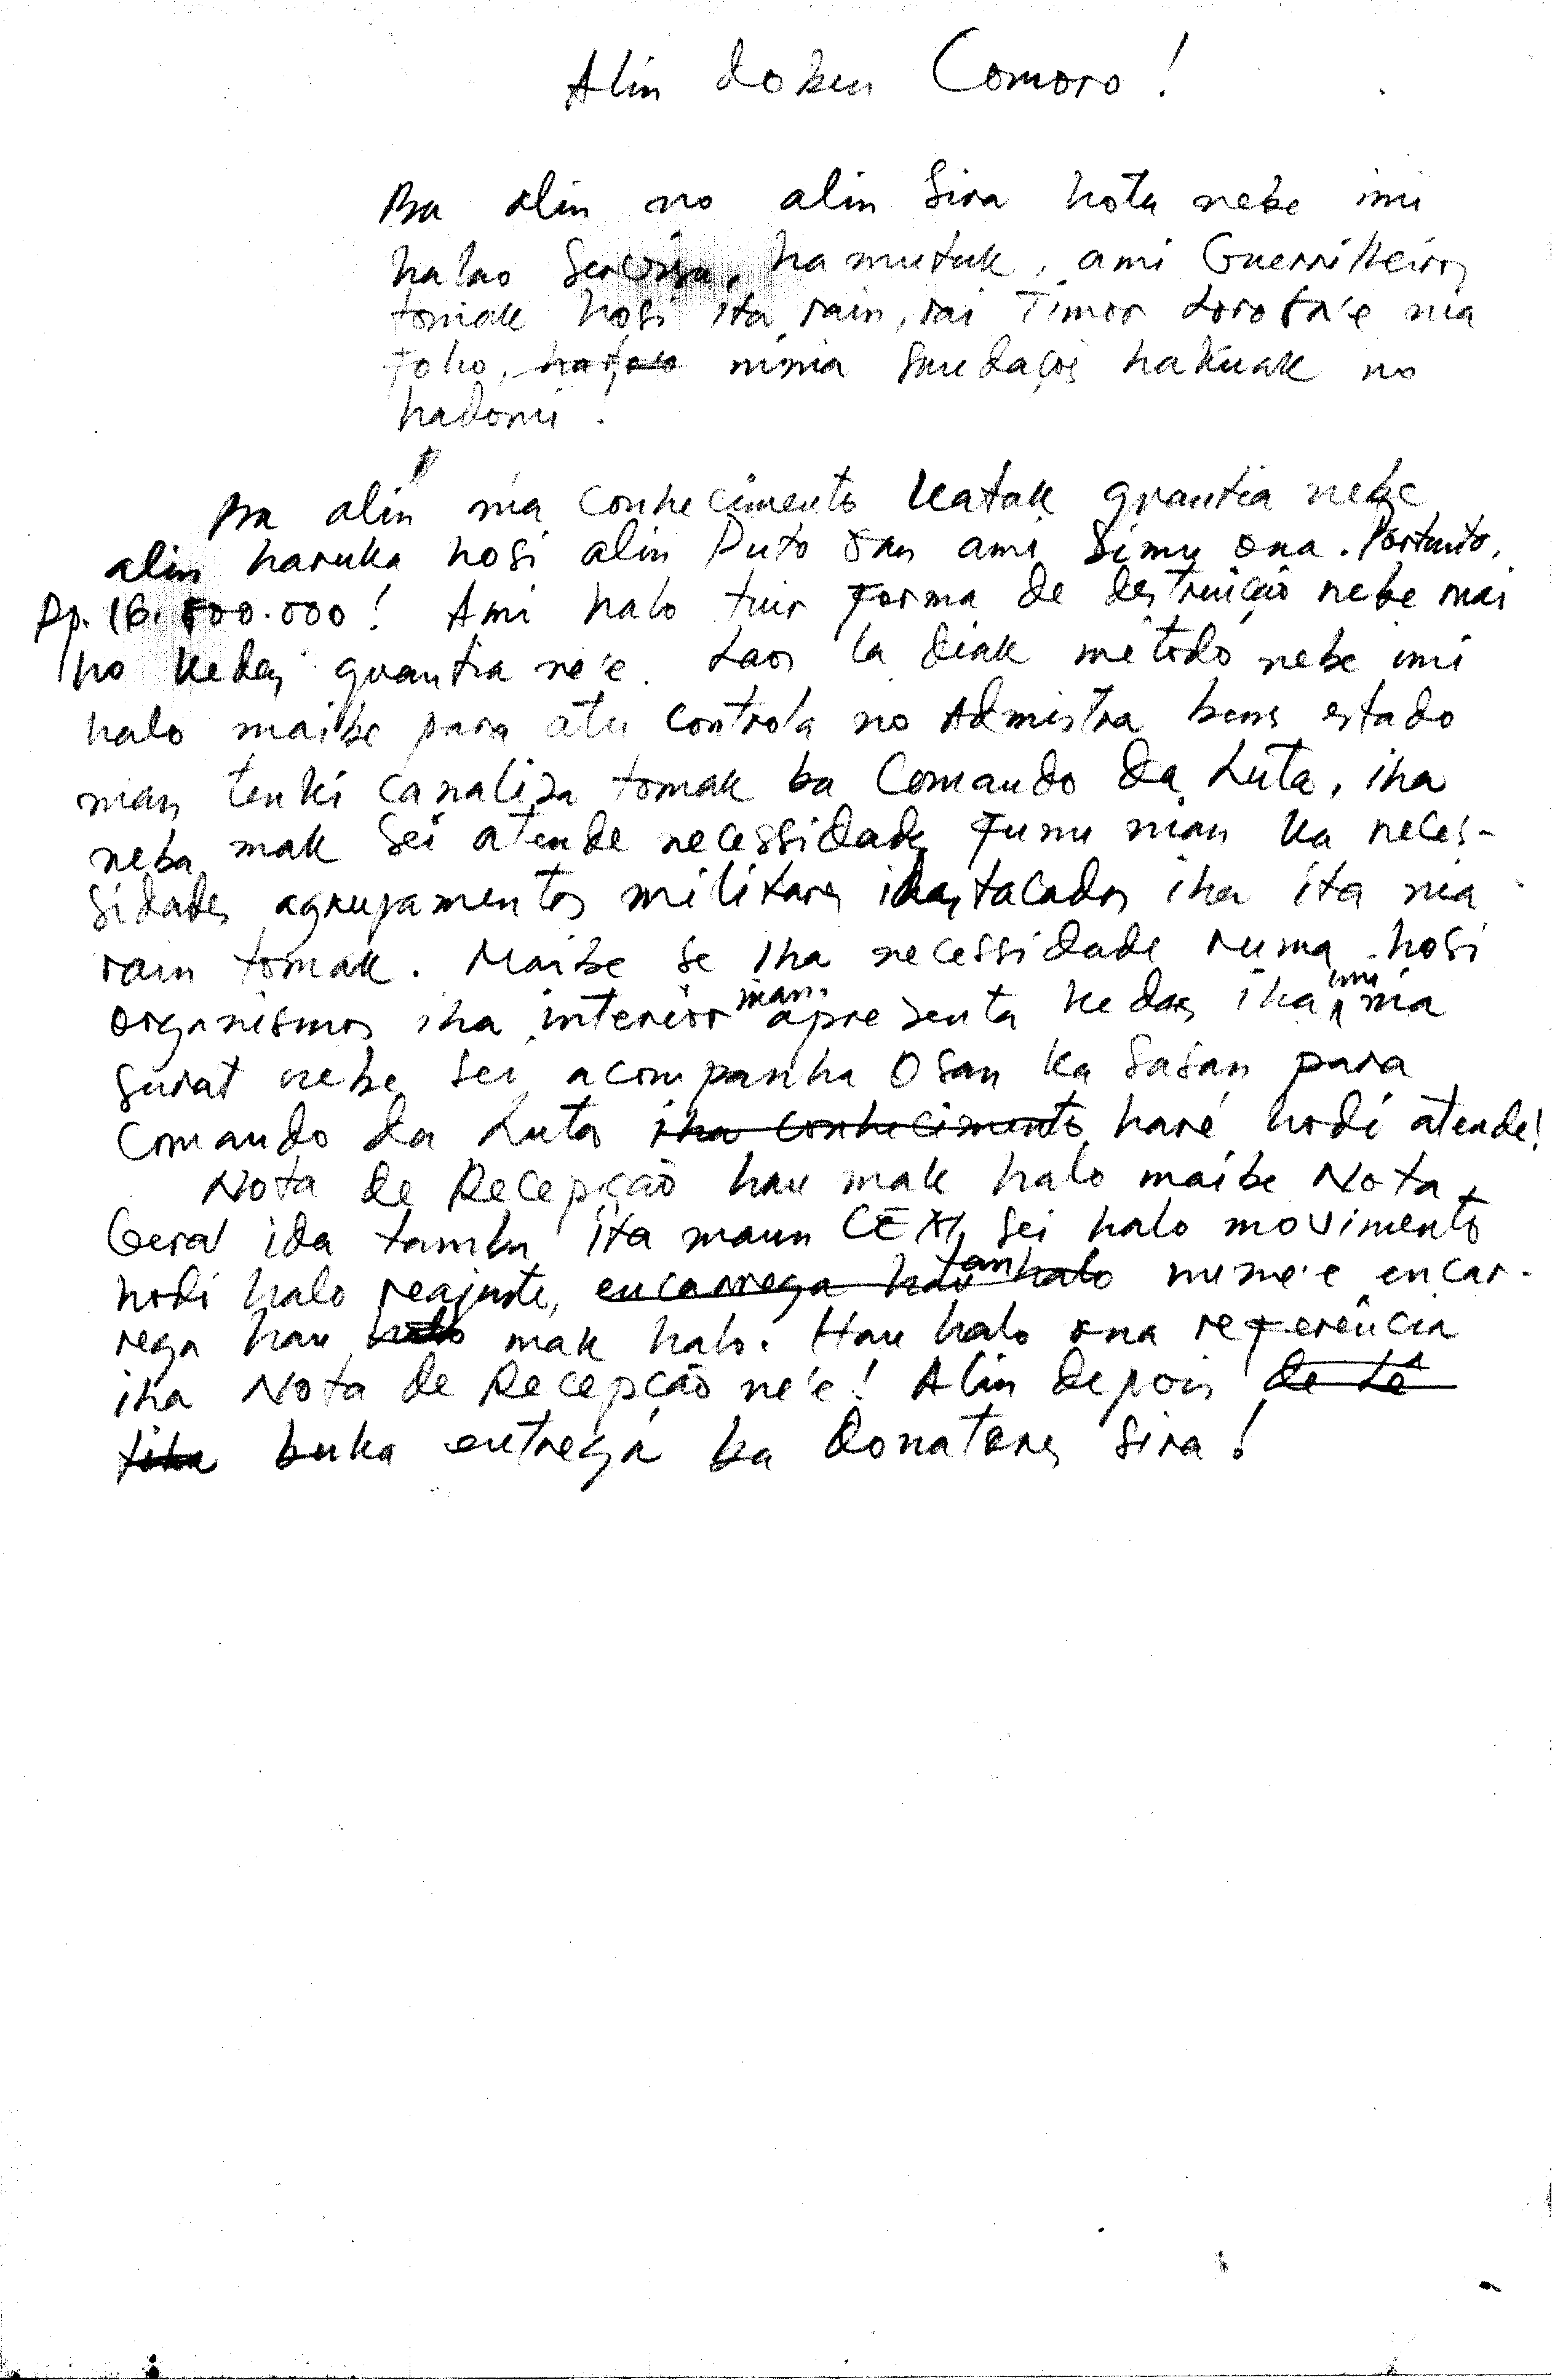 Alin doben Comoro!
Ba alin no alin sira hotu nebe imi
halao servisu, hamutuk, ami Guerrilheiros
tomak hosi ita rain, rai Timor Lorosa'e nia
foho, nimia saudações hakuak no
hadomi!
Ba alin nia conhecimento katak quantia nebe
alin haruka hosi alin Puto oan ami simu ona. Portanto,
Rp. 16.500.000! Ami halo tuir forma de destruição nebe mai
ho kedas quantia ne'e. Laos la diak metodo nebe imi
halo maibe para atu controla no Admistra bens estado
nian tenki canaliza tomak ba Comando da Luta, iha
neba mak sei atende necessidades funu nian ka neces-
sidades agrupamentos militares destacados iha ita nia
rain tomak. Maibe se iha necessidade ruma hosi
organismos iha interior nian apresenta kedas iha imi nia
surat nebe sei acompanha osan ka sasan para
Comando da Luta iha conhecimento haré hodi atende!
Nota de Recepção hau mak halo maibe Nota
Geral ida tamba ita maun CEXG sei halo movimento
hodi halo reajuste, encarrega hau halo tan nune'e encar-
rega hau halo mak halo. Hau halo ona referência
iha Nota de Recepção ne'e! Alin depois de Lê
tiha buka entrega ba Donatores sira!